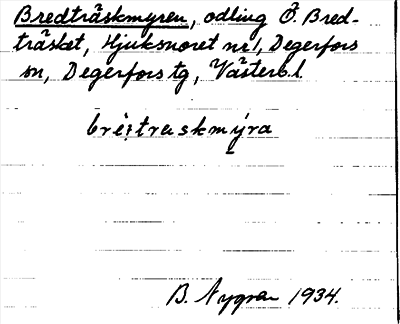 Bredträskmyren, odling Ö. Bred-
träsket, Hjuksnoret nr 1, Degerfors
sn, Degerfors tg, Västerb. l.
bréi:traskmýra
B. Nygren 1934.